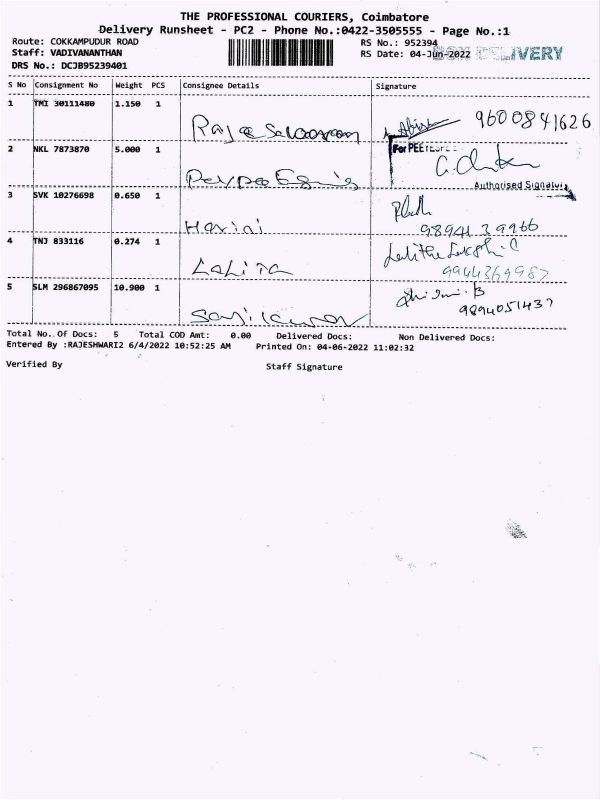 THE PROFESSIONAL COURIERS, Coimbatore
Delivery Runsheet - PC2 - Phone No.:0422-3505555 - Page No.:1
Route: COKKAMPUDUR ROAD RS No.: 952394
Staff: VADIVANANTHAN RS Date: 04-Jun-2022 DELIVERY
DRS No.: DCJB95239401
S No Consignment No Weight PCS Consignee Details Signature
1 TMI 30111480 1.150 1
9600841626
2 NKL 7873870 5.000 1
For
Authorised Signatory
3 SVK 10276698 0.650 1
Harini
4 TNJ 833116 0.274 1
Lalita
9944369987
5 SLM 296867095 10.900 1
Total No. Of Docs: 5 Total COD Amt: 0.00 Delivered Docs: Non Delivered Docs:
Entered By :RAJESHWARI2 6/4/2022 10:52:25 AM Printed On: 04-06-2022 11:02:32
Verified By Staff Signature